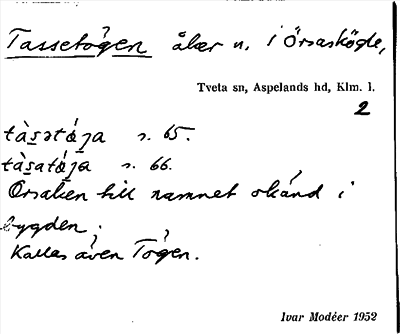 Tassetógen åker n. i Örsaskógle,
Tveta sn, Aspelands hd, Klm. l.
2
tàsətája s. 65.
tàsatája s. 66.
Orsaken till namnet okänd i
bygden;
Kallas även Tógen.
Ivar Modéer 1952